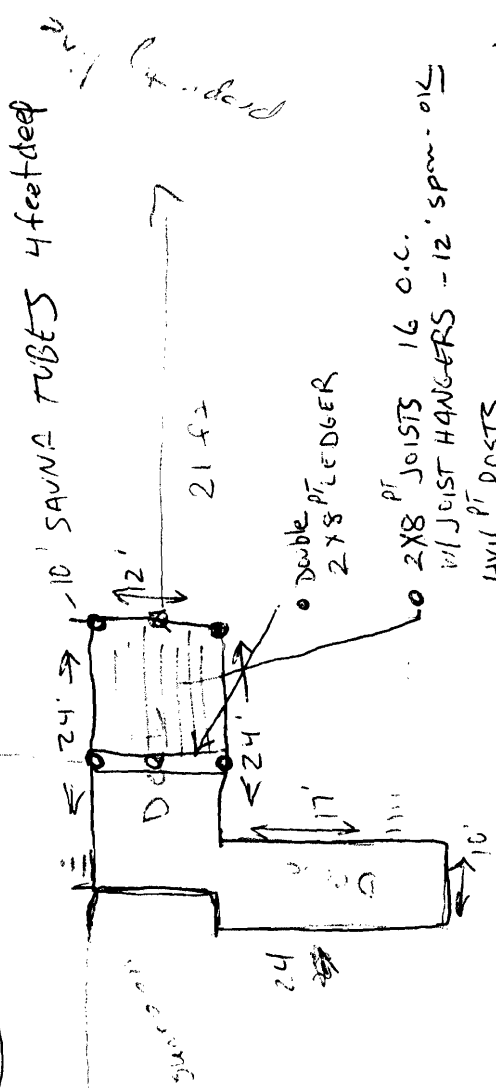 property line
10' SAUNA TUBES 4 feet deep
21 ft
12'
24'
Deck
24'
Double
2X8 PT LEDGER
2X8 PT JOISTS 16 O.C.
W/ JOIST HANGERS - 12' span - OK
4X4 PT POSTS
17'
10'
24